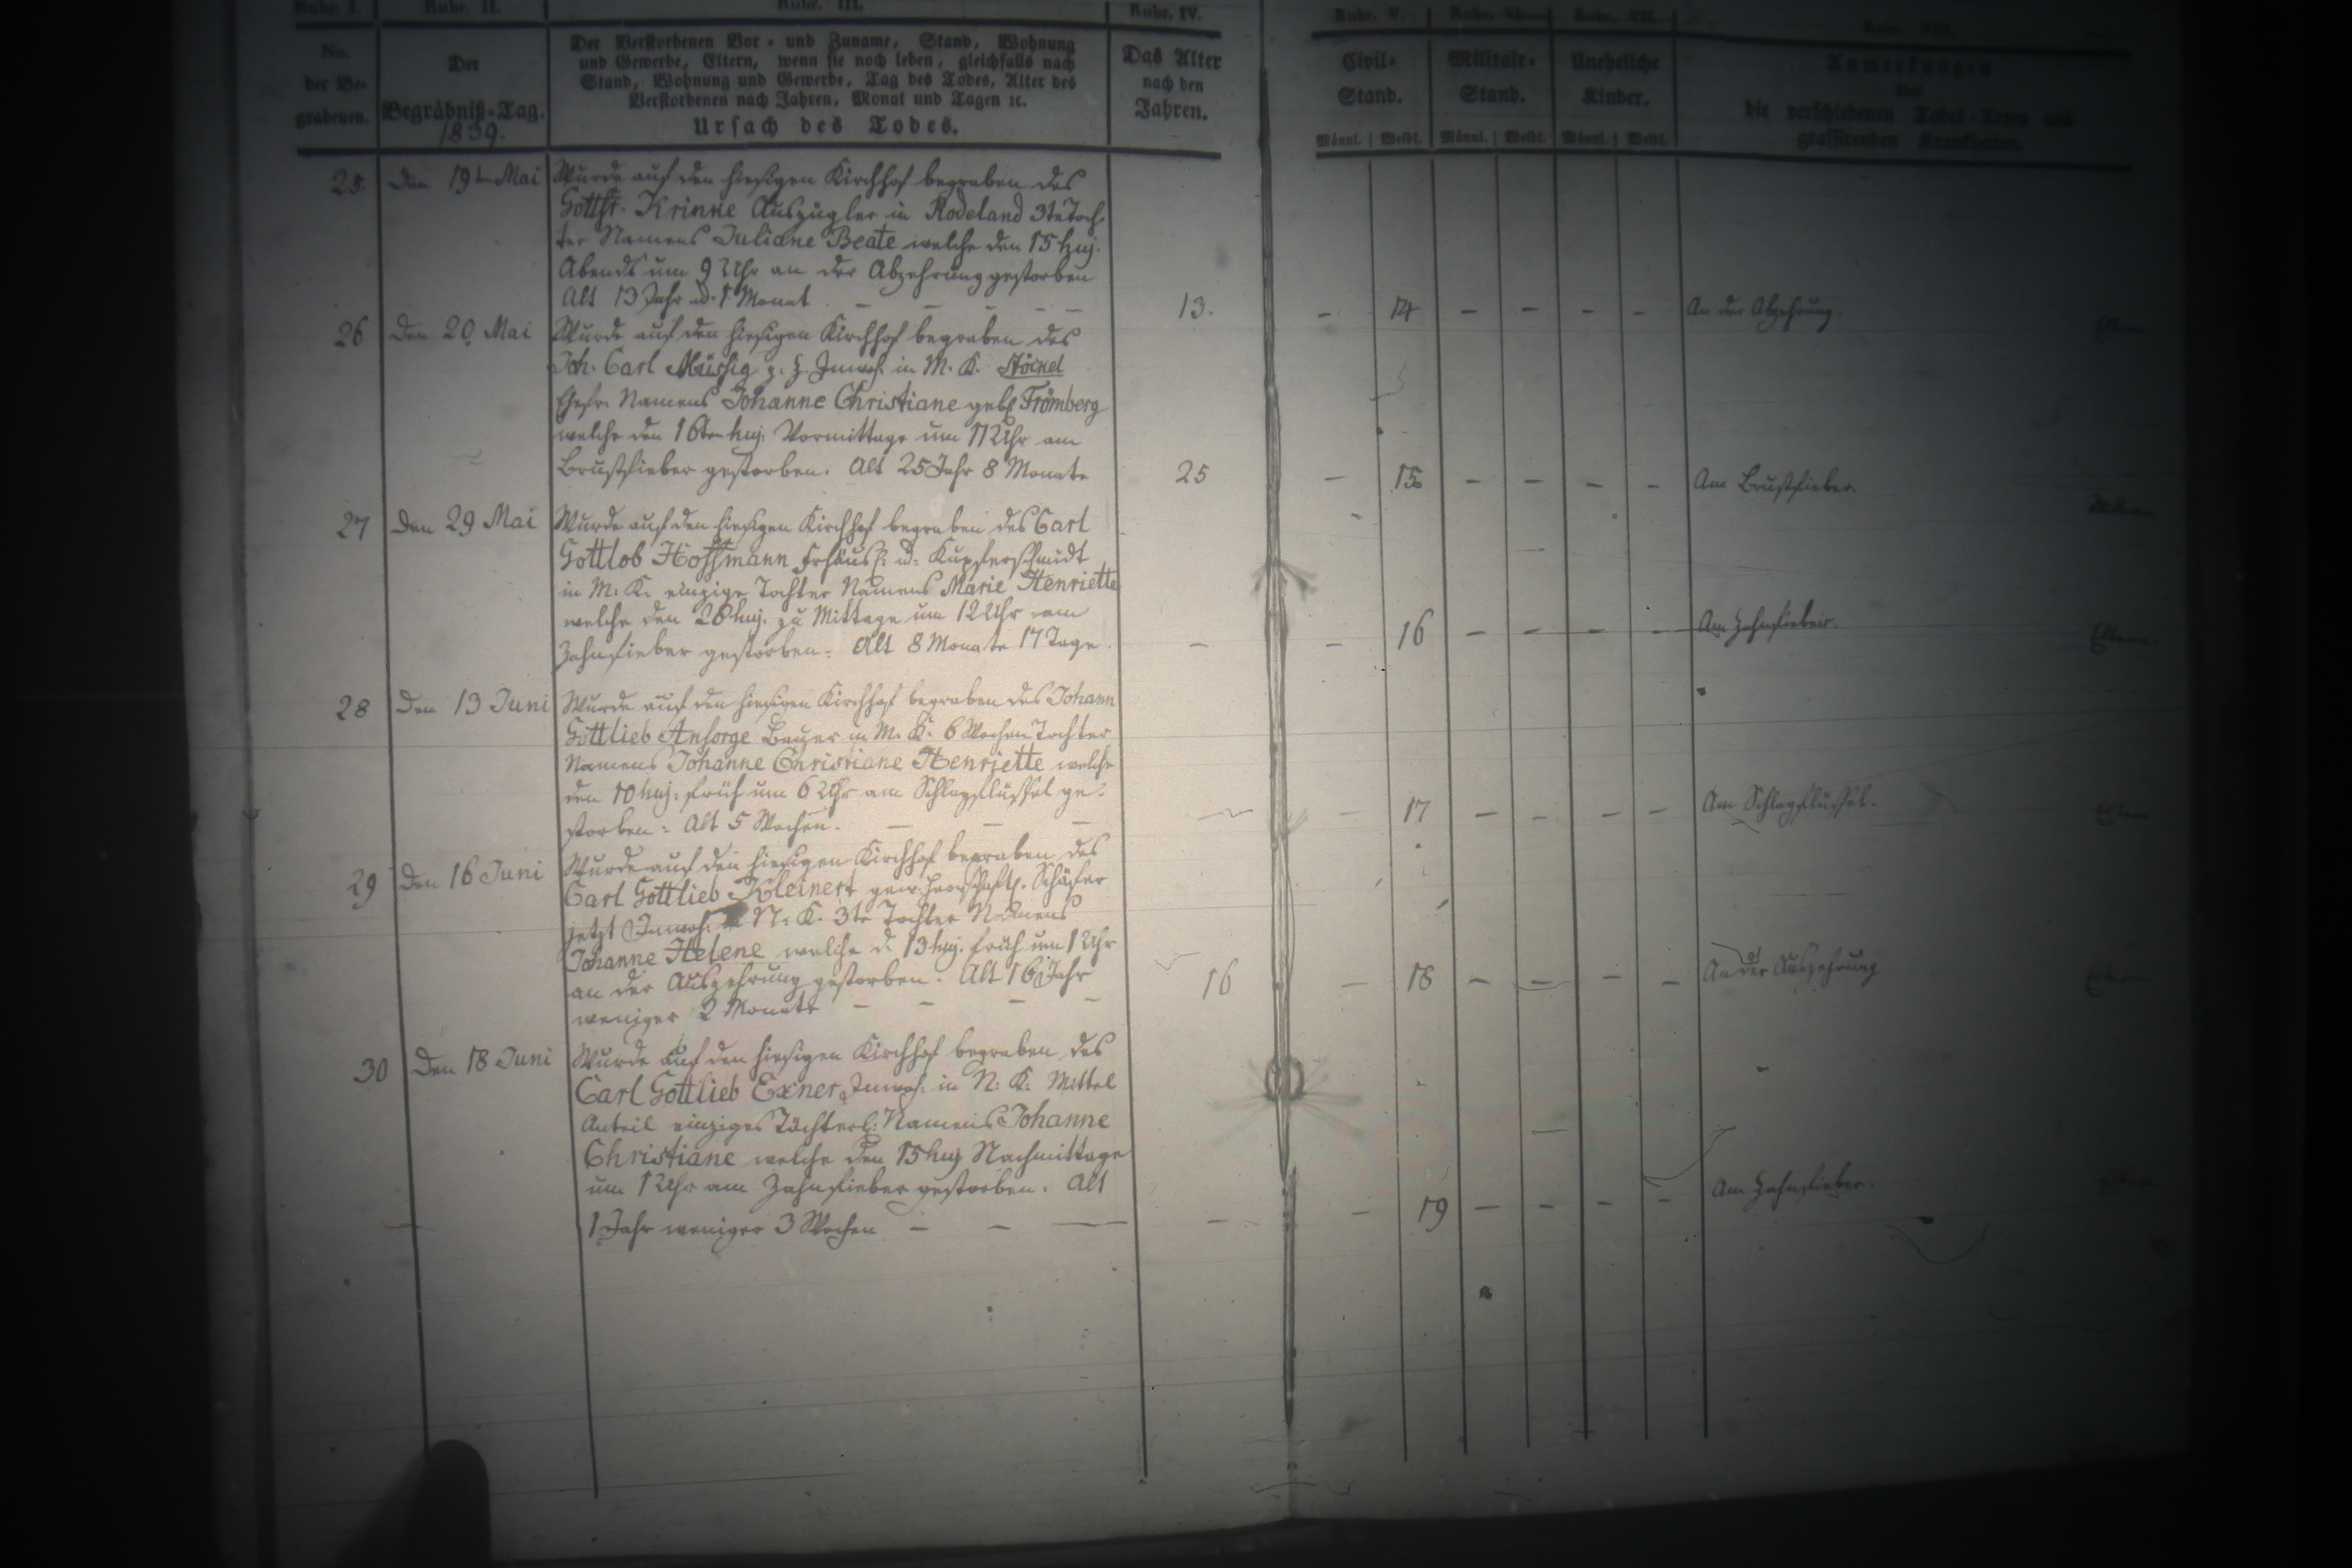 Rubr. I. Rubr. II. Rubr. III. Rubr. IV. Rubr. V. Rubr. VI. Rubr. VII. Rubr. VIII.
No.
der Be-
grabenen.
Der
Begräbniß-Tag.
1839.
Der Verstorbenen Vor- und Zuname, Stand, Wohnung
und Gewerbe, Eltern, wenn sie noch leben, gleichfalls nach
Stand, Wohnung und Gewerbe, Tag des Todes, Alter des
Verstorbenen nach Jahren, Monat und Tagen ꝛc.
Ursach des Todes.
Das Alter
nach den
Jahren.
Civil-
Stand.
Männl. | Weibl.
Militair-
Stand.
Männl. | Weibl.
Uneheliche
Kinder.
Männl. | Weibl.
Anmerkungen
die verschiedenen Todes-Arten und
grassirenden Krankheiten.
25. Den 19t Mai Wurde auf den hiesigen Kirchhof begraben des
Gottfr. Krinke Auszügler in Rodeland 3te Toch-
ter Namens Juliane Beate welche den 15 huj.
Abends um 9 Uhr an der Abzehrung gestorben
Alt 13 Jahr u. 1 Monat — — — — — 13. — 14 — — — — An der Abzehrung.
26 Den 20 Mai Wurde auf den hiesigen Kirchhof begraben des
Joh. Carl Müssig z. Z. Inwoh. in M. K. Stöckel
Ehefr. Namens Johanne Christiane geb. Frömberg
welche den 16ten huj. Vormittage um 11 Uhr am
Brustfieber gestorben. Alt 25 Jahr 8 Monate 25 — 15 — — — — Am Brustfieber.
27 Den 29 Mai Wurde auf den hiesigen Kirchhof begraben des Carl
Gottlob Hoffmann Frhäusl. u. Kupferschmidt
in M. K. einzige Tochter Namens Marie Henriette
welche den 26 huj. zu Mittage um 12 Uhr am
Zahnfieber gestorben. Alt 8 Monate 17 Tage. — — 16 — — — — Am Zahnfieber.
28 Den 13 Juni Wurde auf den hiesigen Kirchhof begraben des Johann
Gottlieb Ansorge Bauer in M. K. 6 Wochen Tochter
Namens Johanne Christiane Henriette welche
den 10 huj. früh um 6 Uhr am Schlagflüssel ge-
storben. Alt 5 Wochen. — — — — — 17 — — — — Am Schlagflüssel.
29 Den 16 Juni Wurde auf den hiesigen Kirchhof begraben des
Carl Gottlieb Kleinert gew. herrschaftl. Schäfer
jetzt Inwoh. N. K. 3te Tochter Namens
Johanne Helene welche d. 13 huj. früh um 1 Uhr
an der Auszehrung gestorben. Alt 16 Jahr
weniger 2 Monate — — — — 16 — 18 — — — — An der Auszehrung
30 Den 18 Juni Wurde auf den hiesigen Kirchhof begraben des
Carl Gottlieb Exner Inwoh. in N. K. Mittel
Anteil einziges Töchterl. Namens Johanne
Christiane welche den 15 huj Nachmittage
um 1 Uhr am Zahnfieber gestorben. Alt
1 Jahr weniger 3 Wochen — — — — — 19 — — — — Am Zahnfieber.